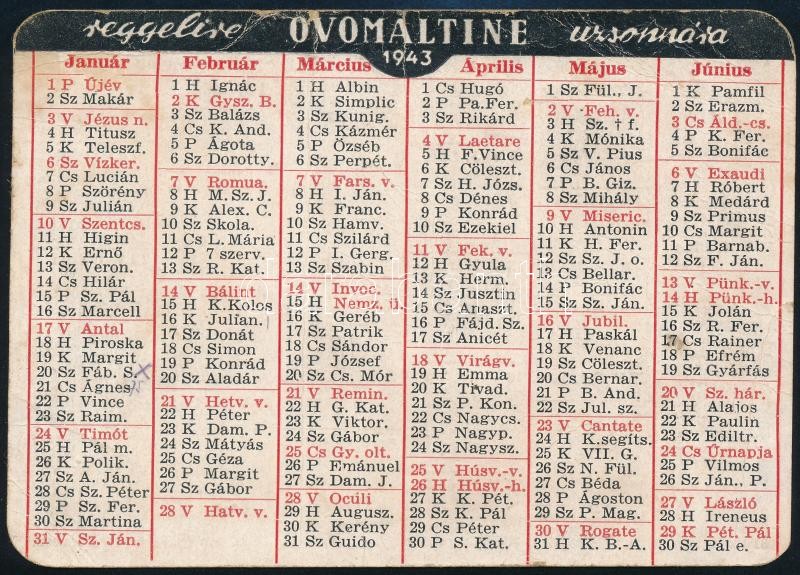 reggelire OVOMALTINE uzsonnára
1943
Január
1 P Újév
2 Sz Makár
3 V Jézus n.
4 H Titusz
5 K Teleszf.
6 Sz Vízker.
7 Cs Lucián
8 P Szörény
9 Sz Julián
10 V Szentcs.
11 H Higin
12 K Ernő
13 Sz Veron.
14 Cs Hilár
15 P Sz. Pál
16 Sz Marcell
17 V Antal
18 H Piroska
19 K Margit
20 Sz Fáb. S.
21 Cs Ágnes
22 P Vince
23 Sz Raim.
24 V Timót
25 H Pál m.
26 K Polik.
27 Sz A. Ján.
28 Cs Sz. Péter
29 P Sz. Fer.
30 Sz Martina
31 V Sz. Ján.
Február
1 H Ignác
2 K Gysz. B.
3 Sz Balázs
4 Cs K. And.
5 P Ágota
6 Sz Dorotty.
7 V Romua.
8 H M. Sz. J.
9 K Alex. C.
10 Sz Skola.
11 Cs L. Mária
12 P 7 szerv.
13 Sz R. Kat.
14 V Bálint
15 H K. Kolos
16 K Julian.
17 Sz Donát
18 Cs Simon
19 P Konrád
20 Sz Aladár
21 V Hetv. v.
22 H Péter
23 K Dam. P.
24 Sz Mátyás
25 Cs Géza
26 P Margit
27 Sz Gábor
28 V Hatv. v.
Március
1 H Albin
2 K Simplic
3 Sz Kunig.
4 Cs Kázmér
5 P Özséb
6 Sz Perpét.
7 V Fars. v.
8 H I. Ján.
9 K Franc.
10 Sz Hamv.
11 Cs Szilárd
12 P I. Gerg.
13 Sz Szabin
14 V Invoc.
15 H Nemz. ü.
16 K Geréb
17 Sz Patrik
18 Cs Sándor
19 P József
20 Sz Cs. Mór
21 V Remin.
22 H G. Kat.
23 K Viktor.
24 Sz Gábor
25 Cs Gy. olt.
26 P Emánuel
27 Sz Dam. J.
28 V Oculi
29 H Augusz.
30 K Kerény
31 Sz Guido
Április
1 Cs Hugó
2 P Pa. Fer.
3 Sz Rikárd
4 V Laetare
5 H F. Vince
6 K Cöleszt.
7 Sz H. Józs.
8 Cs Dénes
9 P Konrád
10 Sz Ezekiel
11 V Fek. v.
12 H Gyula
13 K Herm.
14 Sz Jusztin
15 Cs Anaszt.
16 P Fájd. Sz.
17 Sz Anicét
18 V Virágv.
19 H Emma
20 K Tivad.
21 Sz P. Kon.
22 Cs Nagycs.
23 P Nagyp.
24 Sz Nagysz.
25 V Húsv.-v.
26 H Húsv.-h.
27 K K. Pét.
28 Sz K. Pál
29 Cs Péter
30 P S. Kat.
Május
1 Sz Fül., J.
2 V Feh. v.
3 H Sz. † f.
4 K Mónika
5 Sz V. Pius
6 Cs János
7 P B. Giz.
8 Sz Mihály
9 V Miseric.
10 H Antonin
11 K H. Fer.
12 Sz Sz. J. o.
13 Cs Bellar.
14 P Bonifác
15 Sz Sz. Ján.
16 V Jubil.
17 H Paskál
18 K Venanc
19 Sz Cöleszt.
20 Cs Bernar.
21 P B. And.
22 Sz Jul. sz.
23 V Cantate
24 H K. segíts.
25 K VII. G.
26 Sz N. Fül.
27 Cs Béda
28 P Ágoston
29 Sz P. Mag.
30 V Rogate
31 H K. B.-A.
Június
1 K Pamfil
2 Sz Erazm.
3 Cs Áld.-cs.
4 P K. Fer.
5 Sz Bonifác
6 V Exaudi
7 H Róbert
8 K Medárd
9 Sz Primus
10 Cs Margit
11 P Barnab.
12 Sz F. Ján.
13 V Pünk.-v.
14 H Pünk.-h.
15 K Jolán
16 Sz R. Fer.
17 Cs Rainer
18 P Efrém
19 Sz Gyárfás
20 V Sz. hár.
21 H Alajos
22 K Paulin
23 Sz Ediltr.
24 Cs Úrnapja
25 P Vilmos
26 Sz Ján., P.
27 V László
28 H Ireneus
29 K Pét. Pál
30 Sz Pál e.